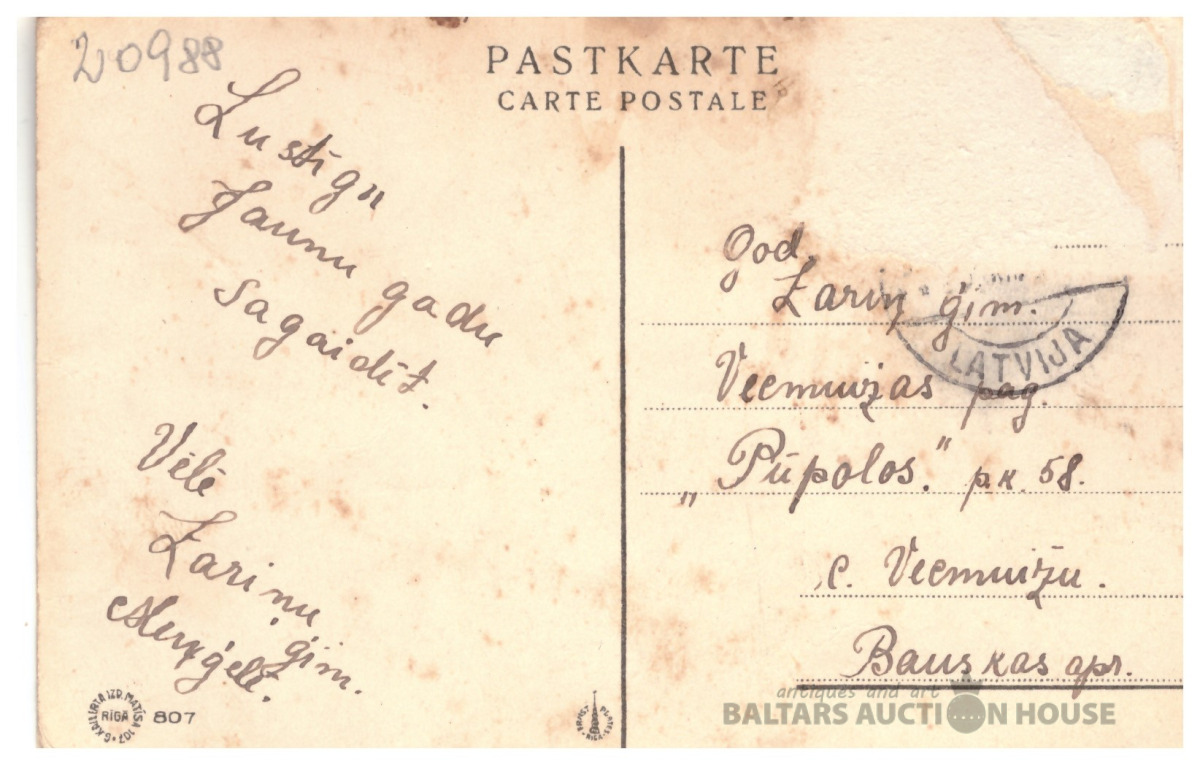 20988
PASTKARTE
CARTE POSTALE
Lustīgu
Jaunu gadu
sagaidīt.
Vēlē
Zariņu
ģim.
God.
Zariņ ģim.
LATVIJA
Vecmuižas pag.
„Pūpolos." pk. 58.
c. Vecmuižu.
Bauskas apr.
RĪGA 807
antiques and art
BALTARS AUCTION HOUSE